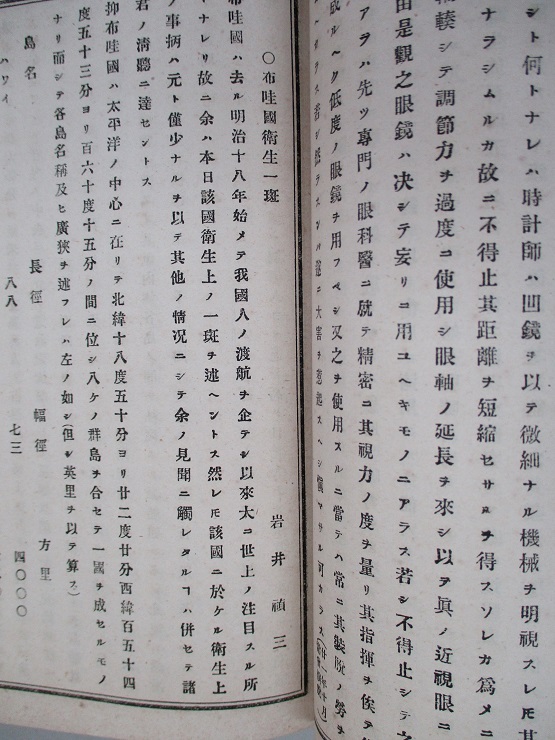 シト何トナレハ時計師ハ凹鏡ヲ以テ微細ナル機械ヲ明視スレ𪜈其
ナラシムルカ故ニ不得止其距離ヲ短縮セサルヲ得スソレカ爲メニ
輻輳シテ調節力ヲ過度ニ使用シ眼軸ノ延長ヲ來シ以テ眞ノ近視眼ニ
由是觀之眼鏡ハ决シテ妄リニ用ユヘキモノニアラス若シ不得止シテ之
アラハ先ツ專門ノ眼科醫ニ就テ精密ニ其視力ノ度ヲ量リ其指揮ヲ俟テ
成ルヘク低度ノ眼鏡ヲ用フベシ又之ヲ使用スルニ當テハ常ニ其裝脫ノ勞ヲ
大害ヲ惹起スヘシ愼マサル可カラス
〇布哇國衛生一斑
岩井禎三
布哇國ハ去ル明治十八年始メテ我國人ノ渡航ヲ企テシ以來大ニ世上ノ注目スル所
ナレリ故ニ余ハ本日該國衛生上ノ一斑ヲ述ヘントス然レ𪜈該國ニ於ケル衛生上
ノ事柄ハ元ト僅少ナルヲ以テ其他ノ情况ニシテ余ノ見聞ニ觸レタルヿハ併セテ諸
君ノ清聽ニ達セントス
抑布哇國ハ太平洋ノ中心ニ在リテ北緯十八度五十分ヨリ廿二度廿分西緯百五十四
度五十三分ヨリ百六十度十五分ノ間ニ位シ八ケノ群島ヲ合セテ一國ヲ成セルモノ
ナリ而シテ各島名稱及ヒ廣狹ヲ述フレハ左ノ如シ(但シ英里ヲ以テ算ス)
島名 長徑 幅徑 方里
ハワイ 八八 七三 四〇〇〇